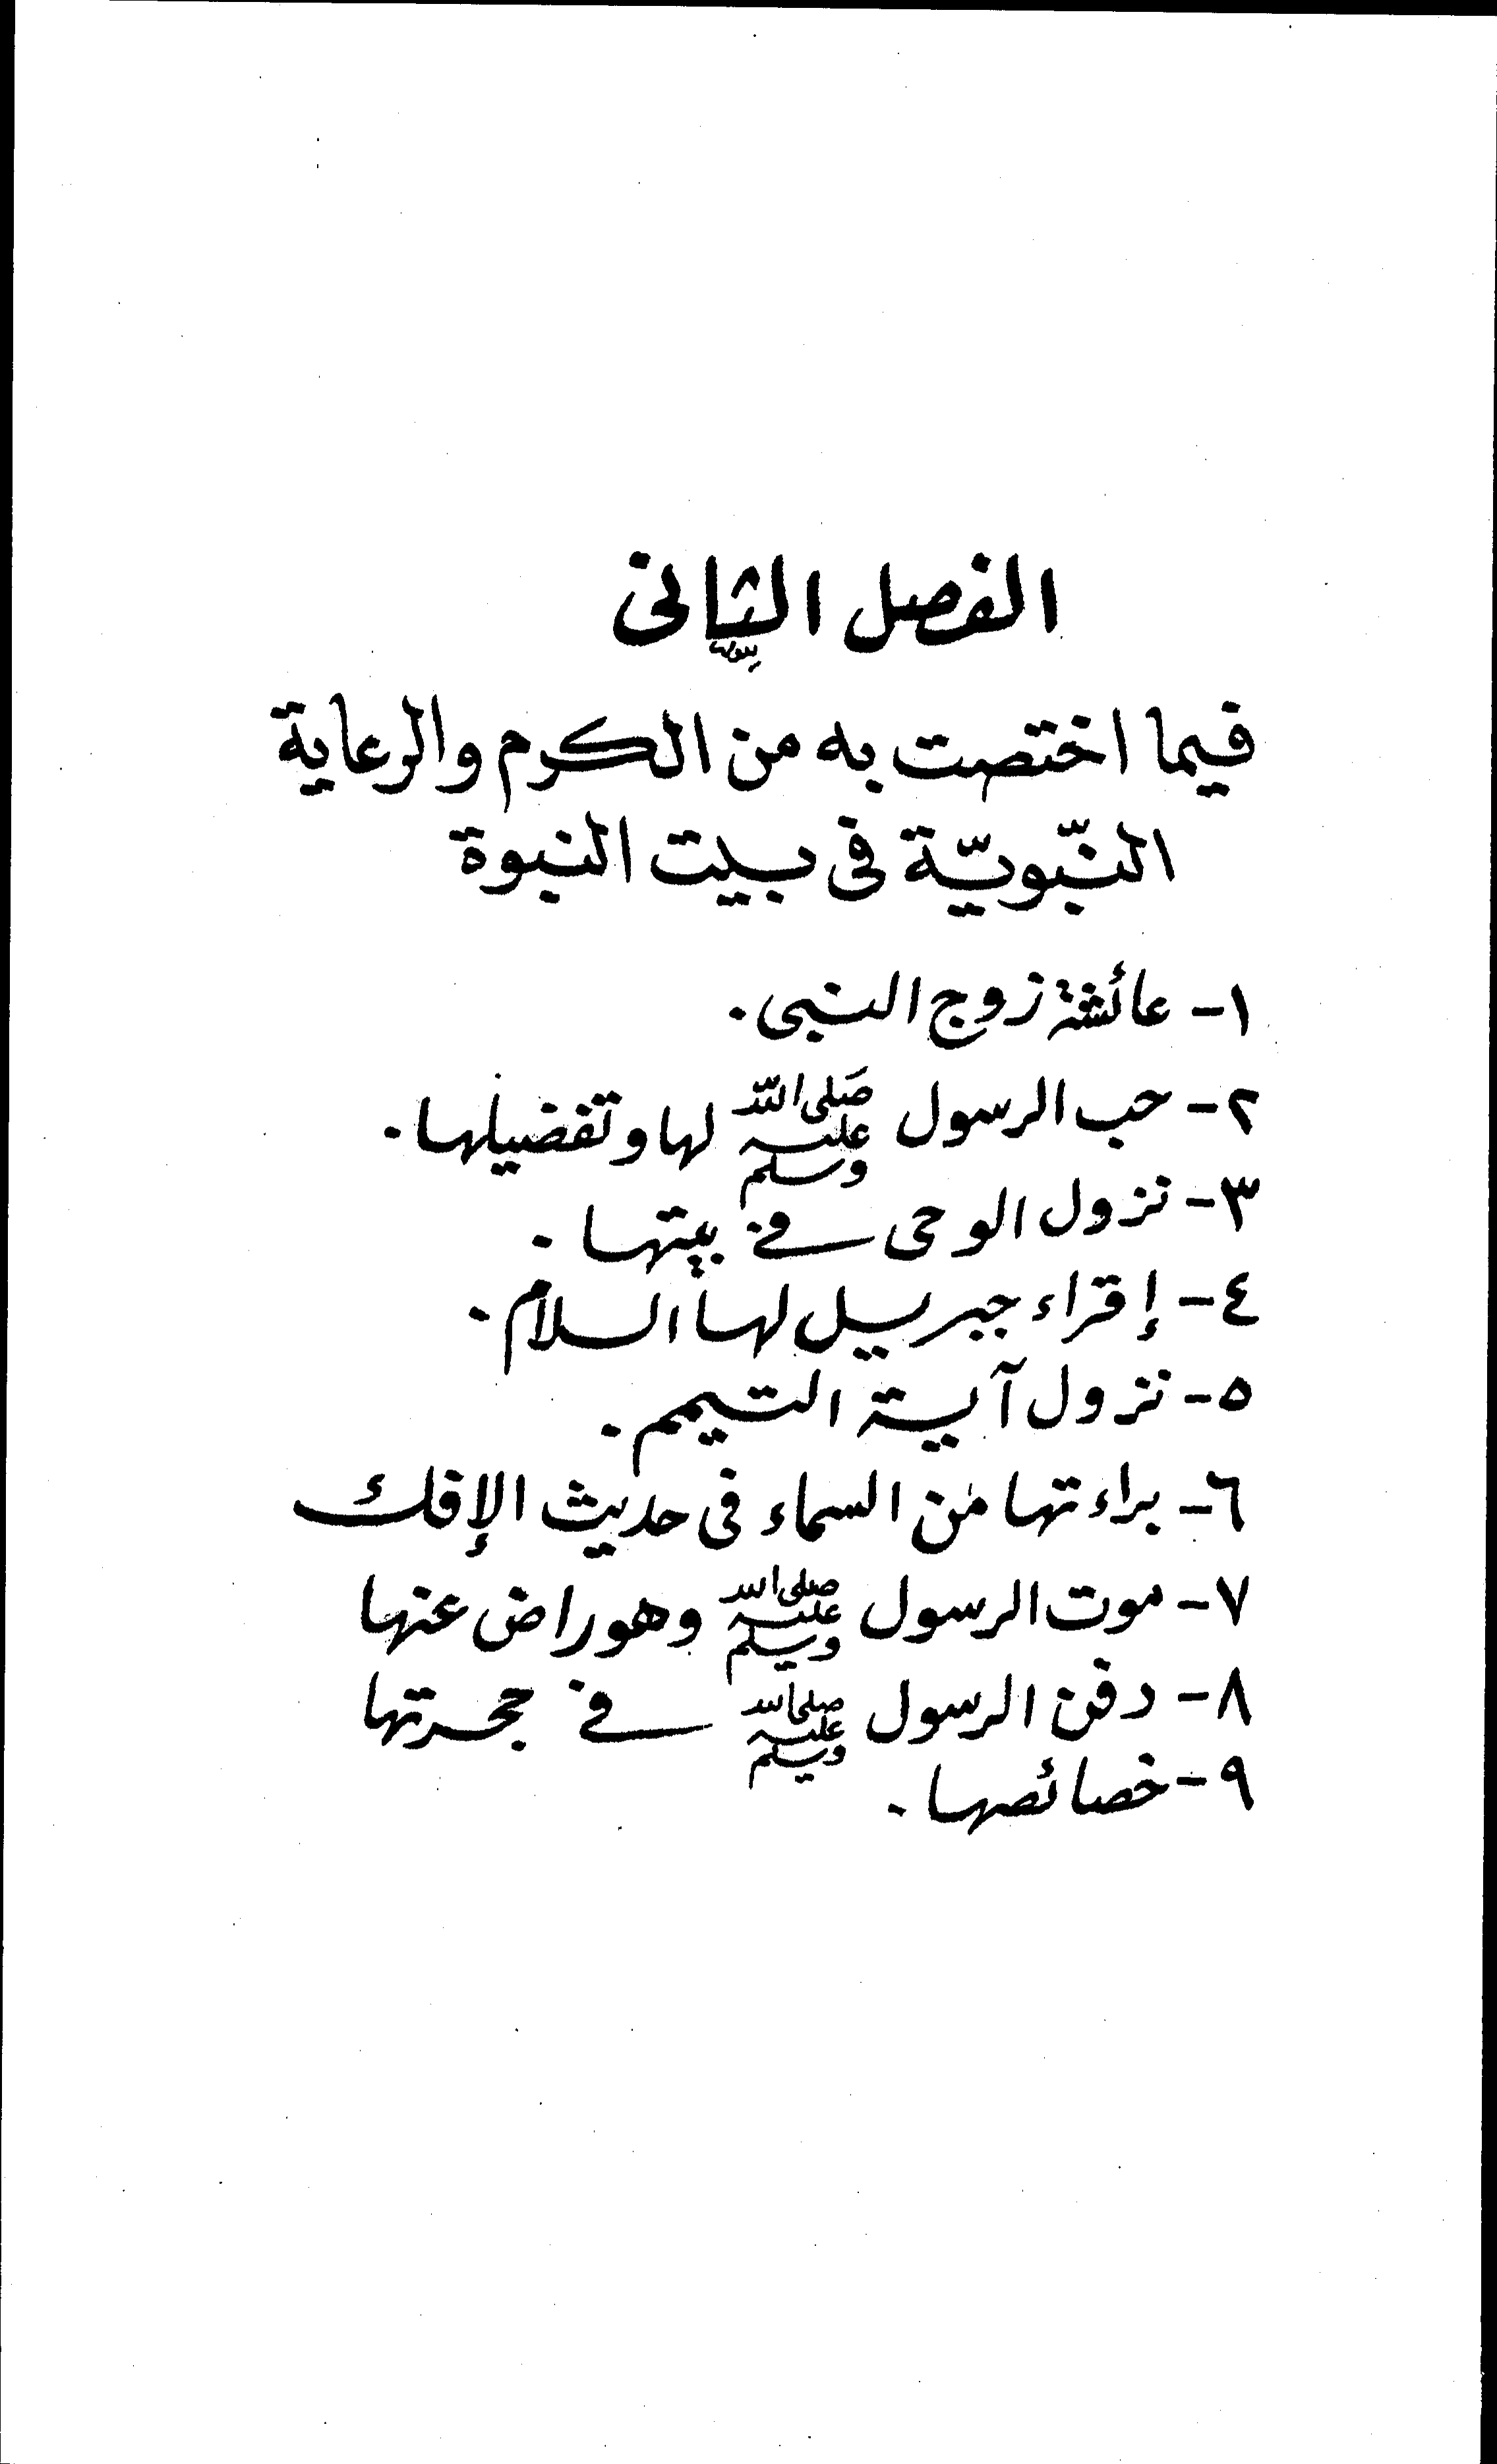 الفصل الثانى
فيما اختصت به من الكرم والرعاية
النّبويّة فى بيت النبوة
١- عائشة زوج النبى.
٢- حب الرسول صلى الله عليه وسلم لها وتفضيلها.
٣- نزول الوحى فى بيتها.
٤- إقراء جبريل لها السلام.
٥- نزول آية التيمم.
٦- براءتها من السماء فى حديث الإفك
٧- موت الرسول صلى الله عليه وسلم وهو راض عنها
٨- دفن الرسول صلى الله عليه وسلم فى حجرتها
٩- خصائصها.